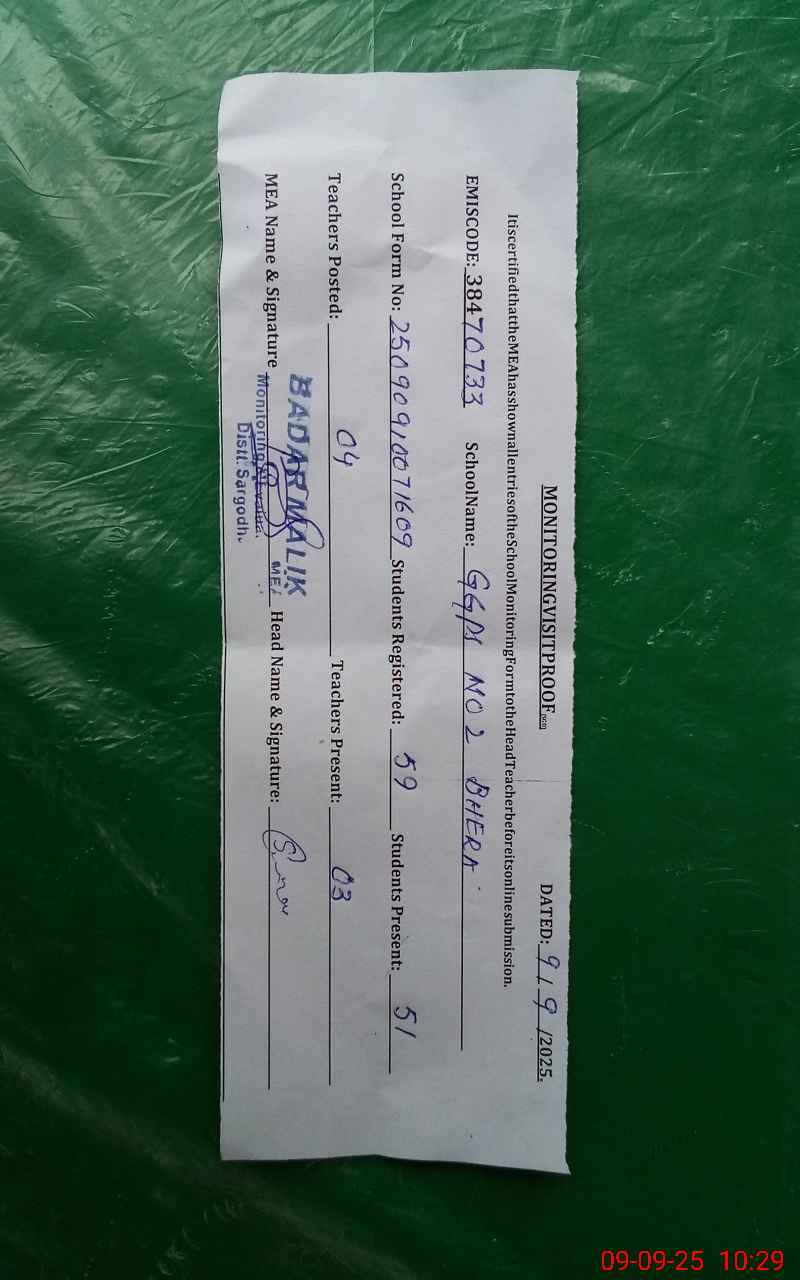 MONITORINGVISITPROOF(DCM) DATED: 9/9/2025.
ItiscertifiedthattheMEAhasshownallentriesoftheSchoolMonitoringFormtotheHeadTeacherbeforeitsonlinesubmission.
EMISCODE: 38470733 SchoolName: GGPS NO 2 BHERA
School Form No: 25090910071609 Students Registered: 59 Students Present: 51
Teachers Posted: 04 Teachers Present: 03
BADAR MALIK
MEA Name & Signature MEA Head Name & Signature:
Monitoring
Distt. Sargodh.
09-09-25 10:29